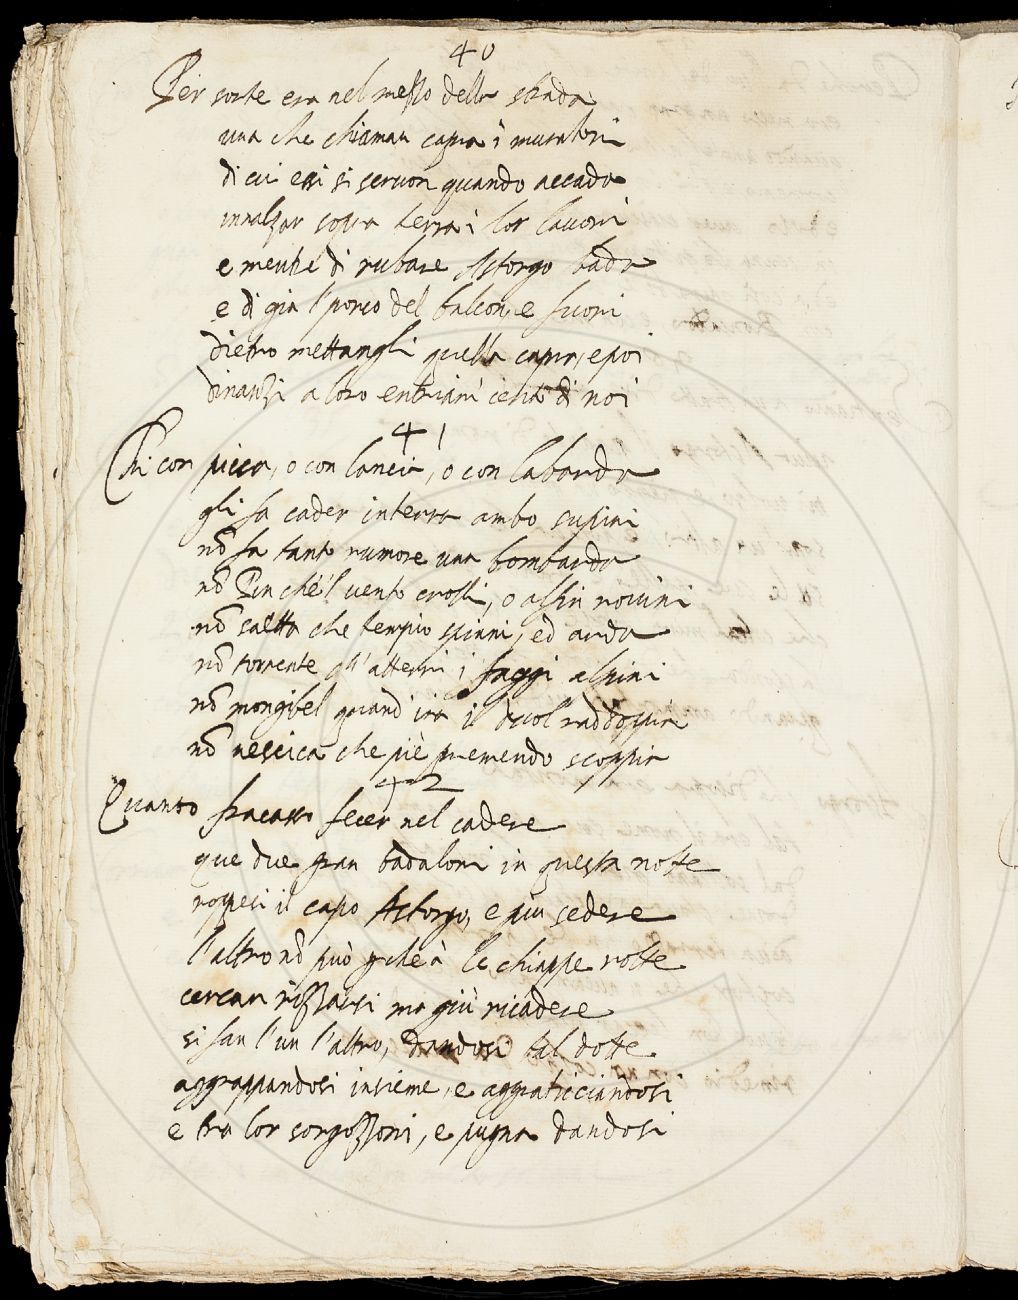 40
Per sorte era nel messo della strada
una che chiaman capra i muratori
di cui essi si servon quando accada
innalzar sopra terra i lor lavori
e mentre di rubare Astorgo bada
e di già l'porco del balcon, e fuori
dietro mettangli quella capra, e poi
dinanzi a loro entriam cert di noi
41
Chi con picca, o con lancia, o con labarda
gli fa cader interra ambo supini
nõ fa tanto rumore una bombarda
nõ Pin ché'l vento crolli, o alfin rovini
nõ saetta che tempio spiani, ed arda
nõ torrente gl'atterri i faggi alpini
nõ mongibel quand'ira il duol raddoppia
nõ vescica che piè premendo scoppia
42
Quanto fracasso fecer nel cadere
que due gran badaloni in questa notte
roppesi il capo Astorgo, e più sedere
l'altro nõ può che à le chiappe rotte
cercan rizzarsi ma giù ricadere
si fan l'un l'altro, dandosi tal dotte
aggrappandosi insieme, e aggraticciandosi
e tra lor sorgozzoni, e pugna dandosi